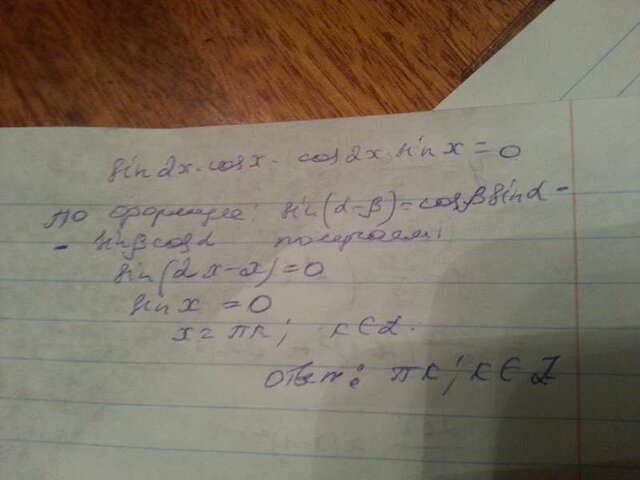 sin 2x · cos x - cos 2x · sin x = 0
по формуле: sin(α-β)=cosβ sinα -
- sinβ cosα получаем:
sin(2x-x)=0
sin x = 0
x = πk; k ∈ Z.
ответ: πk; k ∈ Z